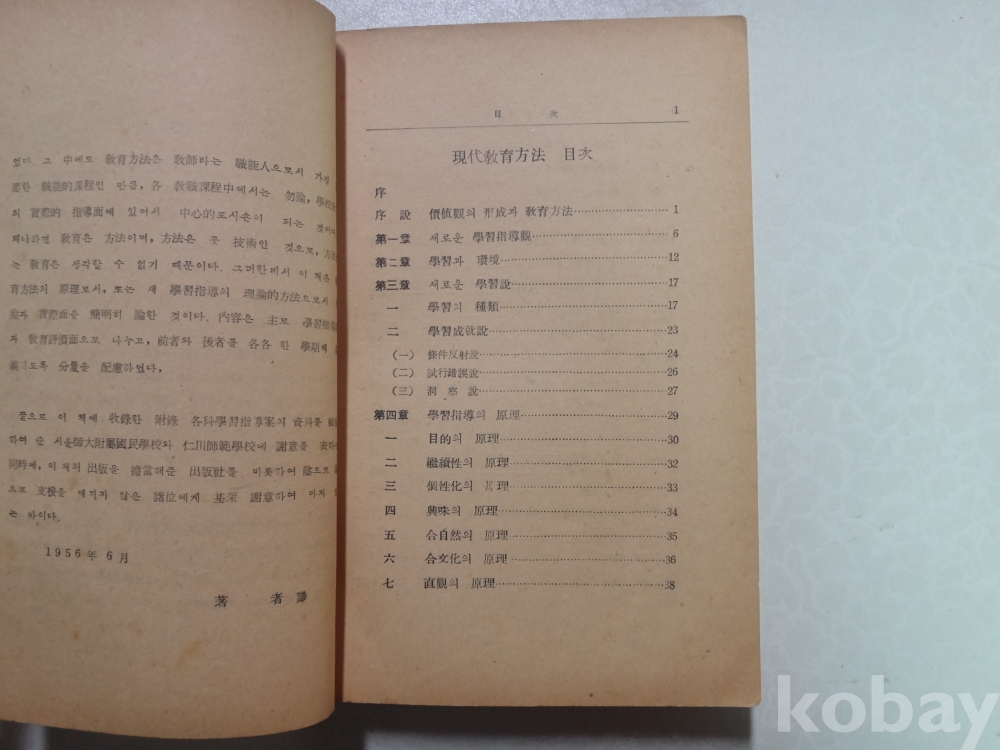 었다. 그 中에도 敎育方法은 敎師라는 職能人으로서 가장
要한 職能的課程인 만큼, 各 敎職課程中에서는 勿論, 學校
의 實際的 指導面에 있어서 中心的포시숀이 되는 것이다
왜냐하면 敎育은 方法이며, 方法은 곳 技術인 것으로, 方法
는 敎育은 생각할 수 없기 때문이다. 그러한데서 이 책은
育方法의 原理로서, 또는 새 學習指導의 理論的方法으로서
論과 實際面을 簡明히 論한 것이다. 內容은 主로 學習指導
과 敎育評價面으로 나누고, 前者와 後者를 各各 한 學期에
義되도록 分量을 配慮하였다,
끝으로 이 책에 收錄한 附錄 各科學習指導案의 資料를
하여 준 서울師大附屬國民學校와 仁川師範學校에 謝意를 表하
同時에, 이 책의 出版을 擔當해준 出版社를 비롯하여 陰으로
으로 支援을 애끼지 않은 諸位에게 甚深 謝意하여 마지
는 바이다.
1956年 6月
著 者 識
目 次 1
現代敎育方法 目次
序
序 說 價値觀의 形成과 敎育方法 1
第一章 새로운 學習指導觀 6
第二章 學習과 環境 12
第三章 새로운 學習說 17
一 學習의 種類 17
二 學習成就說 23
(一) 條件反射說 24
(二) 試行錯誤說 26
(三) 洞察說 27
第四章 學習指導의 原理 29
一 目的의 原理 30
二 繼續性의 原理 32
三 個性化의 原理 33
四 興味의 原理 34
五 合自然의 原理 35
六 合文化의 原理 36
七 直觀의 原理 38
kobay